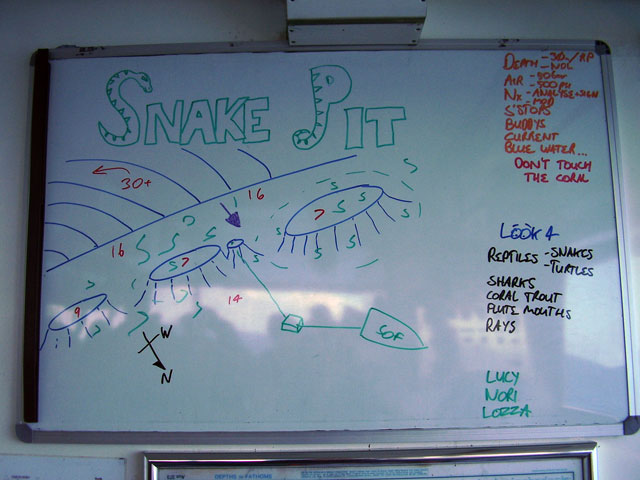 SNAKE PIT
30+
16
16
7
7
9
14
W
N
SOF
DEPTH - 30m/RP
- NDL
AIR - 50bar
- 700 PSI
Nx - ANALYSE + SIGN
- MOD
S'STOPS
BUDDYS
CURRENT
BLUE WATER...
DON'T TOUCH
THE CORAL
LOOK 4
REPTILES - SNAKES
- TURTLES
SHARKS
CORAL TROUT
FLUTE MOUTHS
RAYS
LUCY
NORI
LOZZA
DEPTHS IN FATHOMS